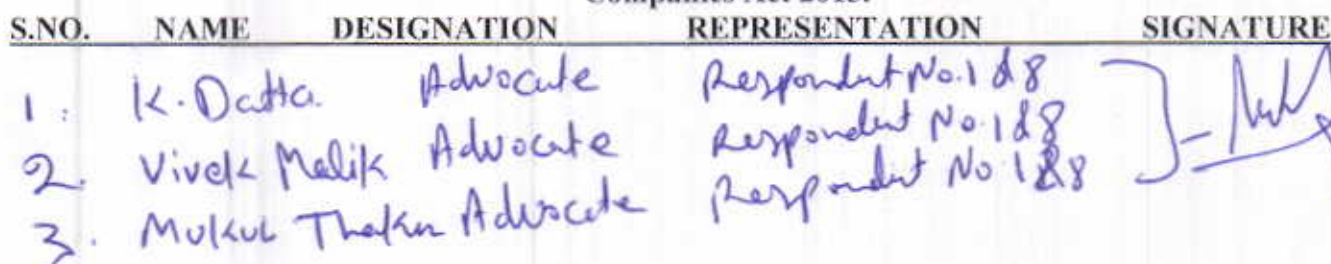 Companies Act 2013.
S.NO. NAME DESIGNATION REPRESENTATION SIGNATURE
1. K. Datta. Advocate Respondent No. 1 & 8
2. Vivek Malik Advocate Respondent No. 1 & 8
3. Mukul Thakur Advocate Respondent No 1 & 8